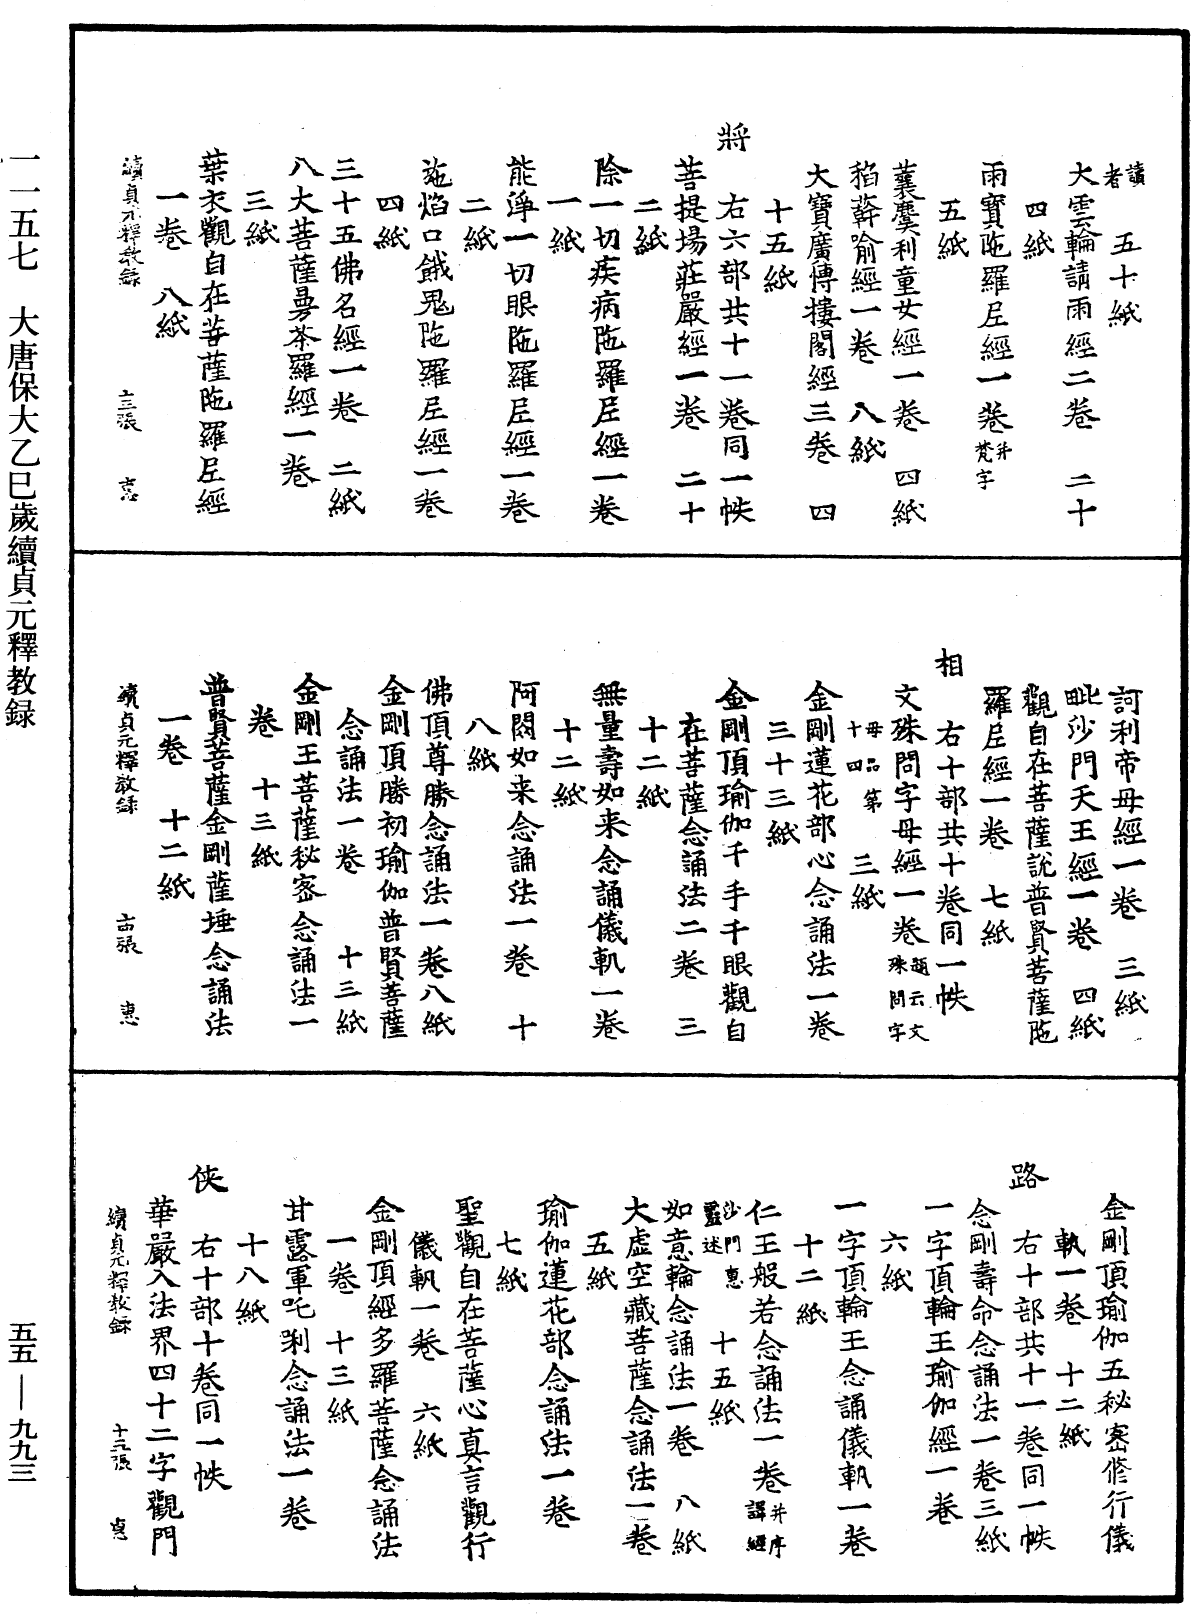 讀者　五十紙
大雲輪請雨經二卷　二十
四紙
雨寶陁羅尼經一卷并梵字
五紙
蘘麌利童女經一卷　四紙
稻簳喻經一卷　八紙
大寶廣博樓閣經三卷　四
十五紙
將　右六部共十一卷同一帙
菩提場莊嚴經一卷　二十
二紙
除一切疾病陁羅尼經一卷
一紙
能淨一切眼陁羅尼經一卷
二紙
施焰口餓鬼陁羅尼經一卷
四紙
三十五佛名經一卷　二紙
八大菩薩曼茶羅經一卷
三紙
葉衣觀自在菩薩陁羅尼經
一卷　八紙
續貞元釋教錄
訶利帝母經一卷　三紙
毗沙門天王經一卷　四紙
觀自在菩薩說普賢菩薩陁
羅尼經一卷　七紙
相　右十部共十卷同一帙
文殊問字母經一卷題云文殊問字
母品第十四　三紙
金剛蓮花部心念誦法一卷
三十三紙
金剛頂瑜伽千手千眼觀自
在菩薩念誦法二卷　三
十二紙
無量壽如来念誦儀軌一卷
十二紙
阿閦如来念誦法一卷　十
八紙
佛頂尊勝念誦法一卷八紙
金剛頂勝初瑜伽普賢菩薩
念誦法一卷　十三紙
金剛王菩薩秘密念誦法一
卷　十三紙
普賢菩薩金剛薩埵念誦法
一卷　十二紙
續貞元釋教錄　十四張　惠
金剛頂瑜伽五秘密修行儀
軌一卷　十二紙
路　右十部共十一卷同一帙
念剛壽命念誦法一卷三紙
一字頂輪王瑜伽經一卷
六紙
一字頂輪王念誦儀軌一卷
十二紙
仁王般若念誦法一卷并序譯經
沙門惠靈述　十五紙
如意輪念誦法一卷　八紙
大虛空藏菩薩念誦法一卷
五紙
瑜伽蓮花部念誦法一卷
七紙
聖觀自在菩薩心真言觀行
儀軌一卷　六紙
金剛頂經多羅菩薩念誦法
一卷　十三紙
甘露軍吒利念誦法一卷
十八紙
俠　右十部十卷同一帙
華嚴入法界四十二字觀門
續貞元釋教錄
一一五七　大唐保大乙巳歲續貞元釋教録
五五—九九三